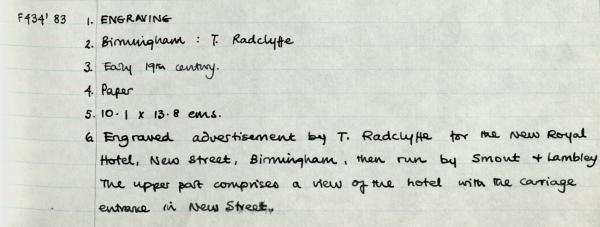 F434' 83 1. ENGRAVING
2. Birmingham : T. Radclyffe
3. Early 19th century.
4. Paper
5. 10.1 x 13.8 cms.
6. Engraved advertisement by T. Radclyffe for the New Royal
Hotel, New Street, Birmingham, then run by Smout + Lambley
The upper part comprises a view of the hotel with the carriage
entrance in New Street.